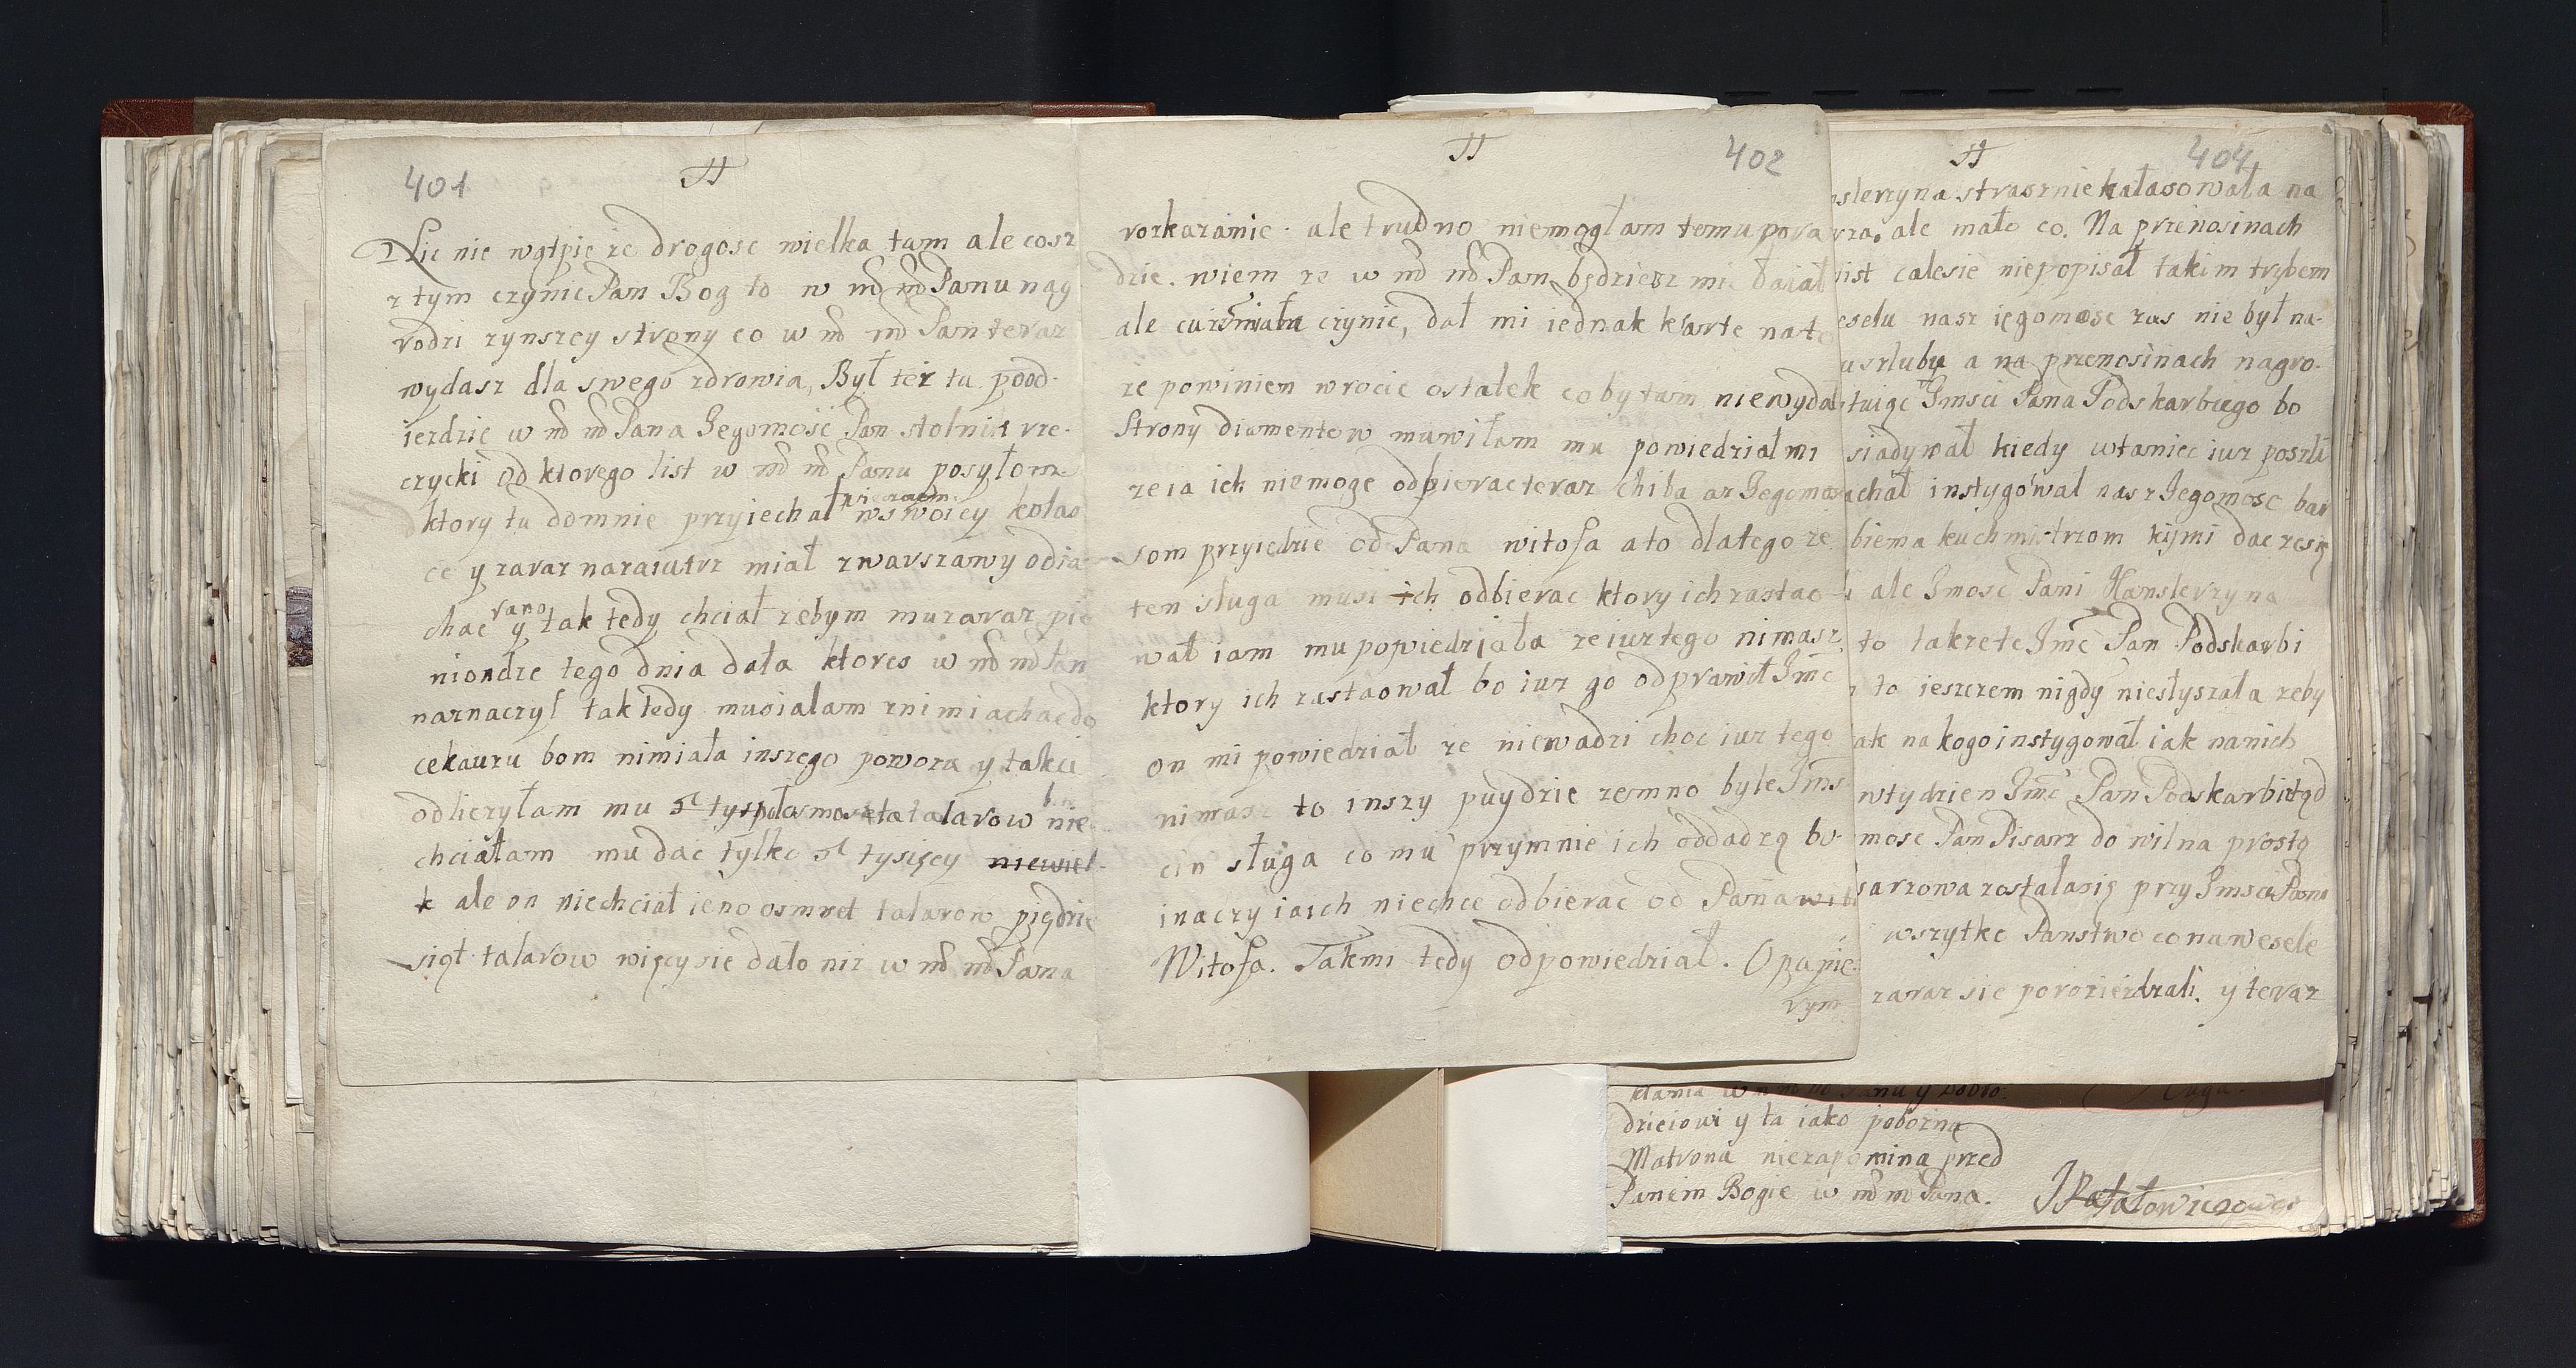 401
Nic nie wątpie ze drogosc wielka tam ale cosz
z tym czynic Pan Bog to w md md Panu nag
rodzi zynszey strony co w md md Pan teraz
wydasz dla swego zdrowia, Był tez tu pood-
iezdzie w md md Pana Jegomość Pan stolnik rze-
czycki od ktorego list w md md Panu posyłom
ktory tu domnie przyiechał wswoiey kolas
wieczorem
ce y zaraz nazaiutrz miał zwarszawy odia-
chac rano y tak tedy chciał zebym muzaraz pie
niondze tego dnia dała ktores w md md Pan
naznaczył tak tedy musialam znimi achac do
cekauzu bom nimiała inszego powoza y takci
odliczyłam mu tys talarow bo nie
chciałam mu dac tylko tysięcy niewiel-
k ale on niechciał ieno osmset talarow piędzie
siąt talarow więcy sie dało niz w md md Pana
402
rozkazanie. ale trudno niemogłam temu pora
dzic. wiem ze w md md Pan będziesz mi łaiał
ale cuiżmiała czynic, dał mi iednak karte nato
ze powinien wrocic ostatek coby tam niewydał
Strony diamentow muwiłam mu powiedział mi
zeia ich niemoge odbierac teraz chiba az Jegomos
som przyiedzie od Pana witosa ato dlatego ze
ten sługa musi ich odbierac ktory ich zastao
wał iam mu popwiedziała ze iusz tego nimasz
ktory ich zastaował bo iuz go odprawił Jmc
on mi powiedział ze niewadzi choc iuz tego
nimasz to inszy puydzie zemno byle Jms
cin sługa co mu przymnie ich oddadzą bo
inaczy iaich niechce odbierac od Pana wit
Witosa. Takmi tedy odpowiedział. O papie-
rym
404
slerzyna strasznie hałasowała na
rza. ale mało co. Na przenosinach
nist calesie niepopisał takim trybem
eselu nasz iegomosc zas nie był na-
u szlubu a na przenosinach nagro-
tuiąc Jmsci Pana Podskarbiego bo
siadywał kiedy wtaniec iuz poszli
achał instygował nasz Jegomosc bar
biema kuchmistrzom kijmi dac zesą
ale Jmosc Pani Kanslerzyna
to takzete Jmc Pan Podskarbi
to ieszczem nigdy niesłyszała zeby
ak nakogo instygował iak nanich
wtydzien Jmc Pan Podskarbi stąd
mosc Pan Pisarz do wilna prosto
sarzowa zostałasię przy Jmsci Pana
wszytko Panstwo co nawesele
zaraz sie porozieżdzali. y teraz
dzieiowi y ta iako pobozna
Matrona niezapomina przed
Paniem Bogie w md md Pana.